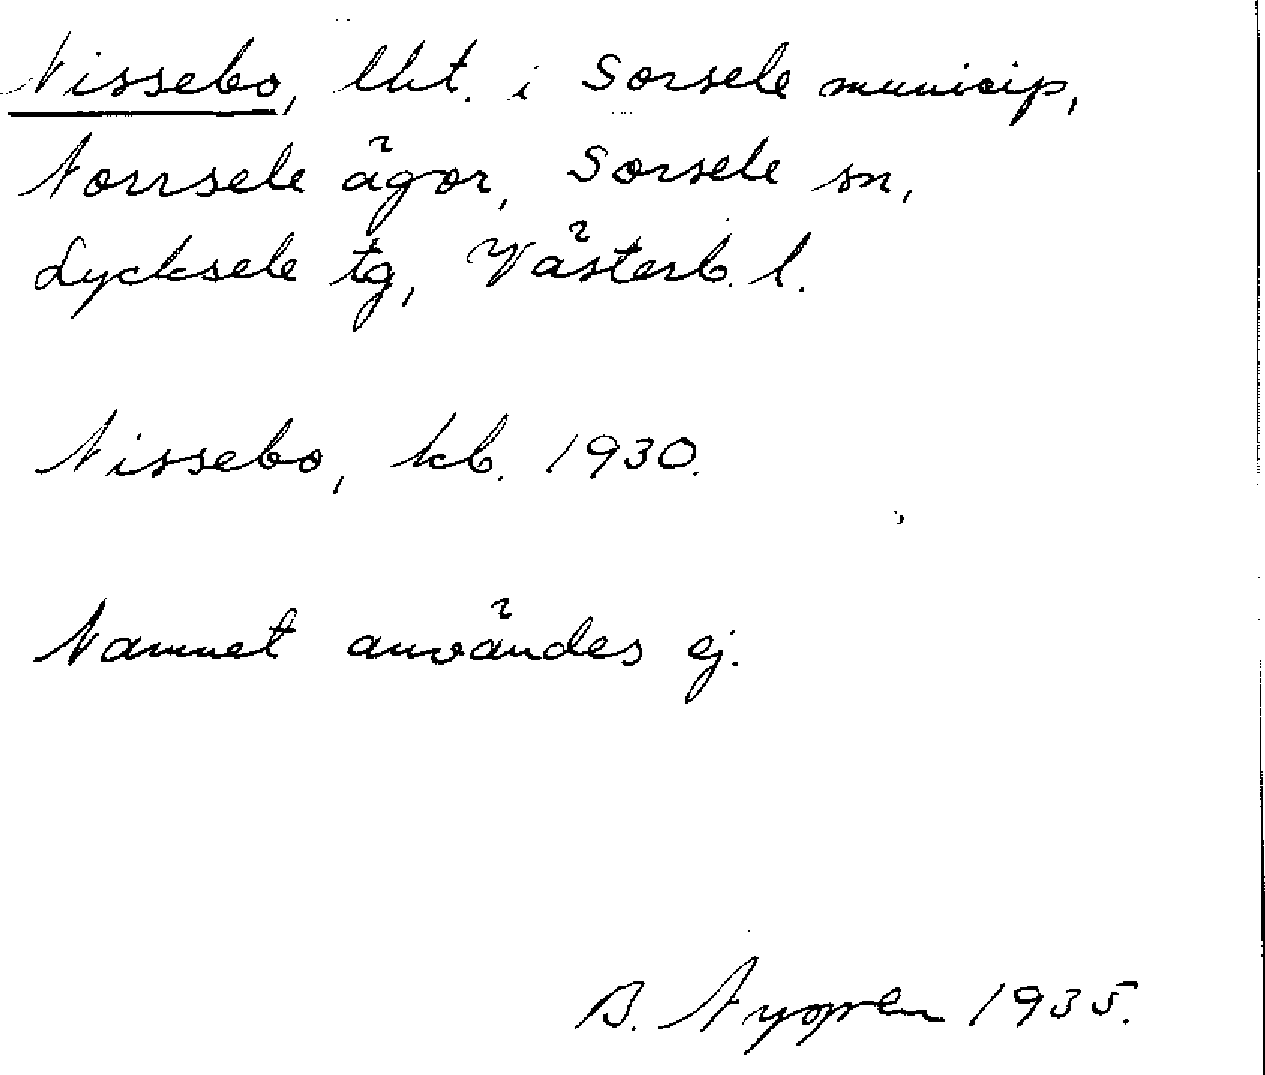 Nissebo, lht. i Sorsele municip,
Norrsele ägor, Sorsele sn,
Lycksele tg, Västerb. l.
Nissebo, kb. 1930.
Namnet användes ej.
B. Nygren 1935.